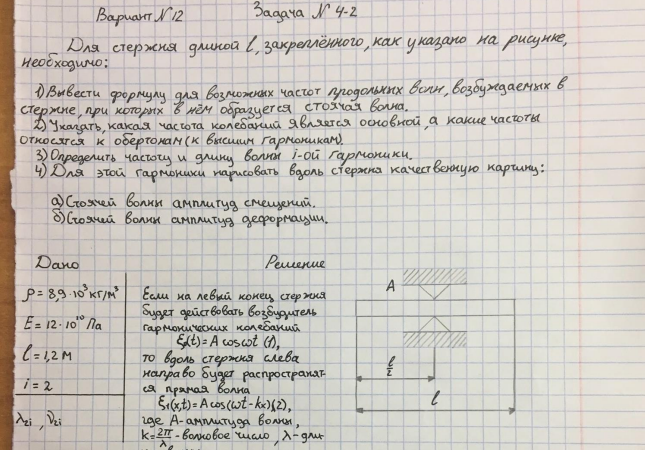 Вариант №12 Задача № 4-2
Для стержня длиной l, закреплённого, как указано на рисунке,
необходимо:
1) Вывести формулу для возможных частот продольных волн, возбуждаемых в
стержне, при которых в нём образуется стоячая волна.
2) Указать, какая частота колебаний является основной, а какие частоты
относятся к обертонам (к высшим гармоникам).
3) Определить частоту и длину волны i-ой гармоники.
4) Для этой гармоники нарисовать вдоль стержня качественную картину:
а) Стоячей волны амплитуд смещений.
б) Стоячей волны амплитуд деформации.
Дано
ρ = 8,9 · 10³ кг/м³
E = 12 · 10¹⁰ Па
l = 1,2 м
i = 2
λ₂i, ν₂i
Решение
Если на левый конец стержня
будет действовать возбудитель
гармонических колебаний
ξ(t) = A cos ωt (1),
то вдоль стержня слева
направо будет распространят-
ся прямая волна
ξ₁(x,t) = A cos(ωt - kx) (2),
где A - амплитуда волны,
k = 2π/λ - волновое число, λ - дли-
A
l/2
l